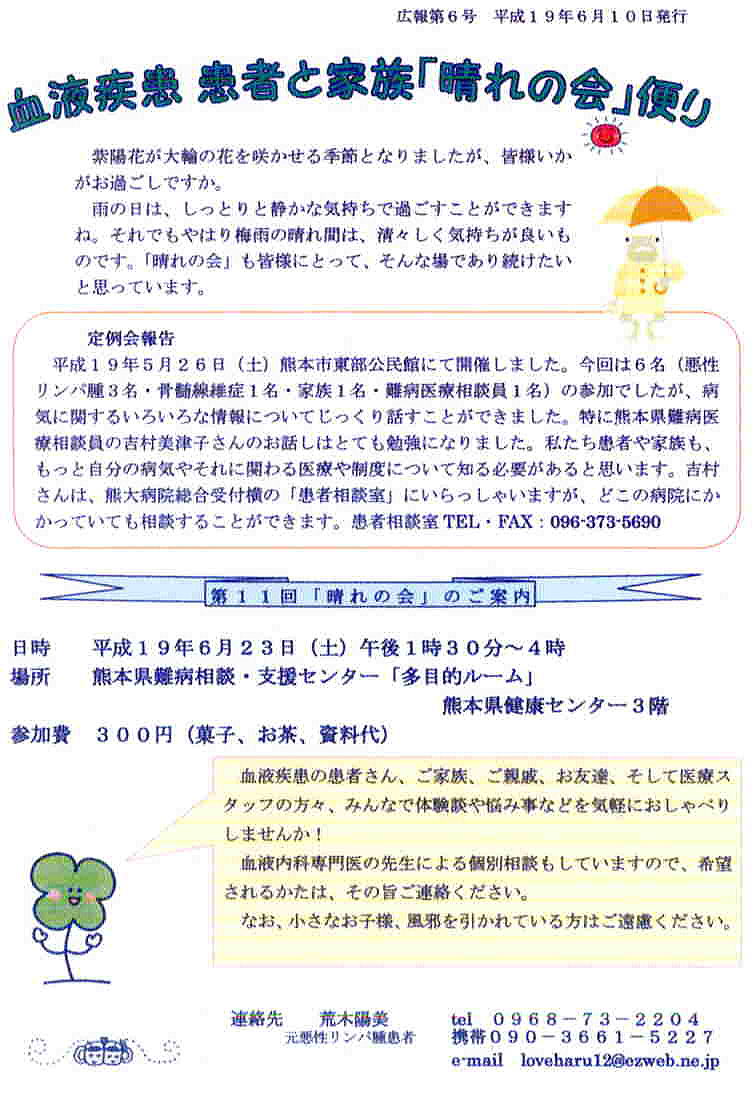 広報第６号　平成１９年６月１０日発行
血液疾患 患者と家族「晴れの会」便り
紫陽花が大輪の花を咲かせる季節となりましたが、皆様いか
がお過ごしですか。
雨の日は、しっとりと静かな気持ちで過ごすことができます
ね。それでもやはり梅雨の晴れ間は、清々しく気持ちが良いも
のです。「晴れの会」も皆様にとって、そんな場であり続けたい
と思っています。
定例会報告
平成１９年５月２６日（土）熊本市東部公民館にて開催しました。今回は６名（悪性
リンパ腫３名・骨髄線維症１名・家族１名・難病医療相談員１名）の参加でしたが、病
気に関するいろいろな情報についてじっくり話すことができました。特に熊本県難病医
療相談員の吉村美津子さんのお話しはとても勉強になりました。私たち患者や家族も、
もっと自分の病気やそれに関わる医療や制度について知る必要があると思います。吉村
さんは、熊大病院総合受付横の「患者相談室」にいらっしゃいますが、どこの病院にか
かっていても相談することができます。患者相談室 TEL・FAX：096-373-5690
第１１回「晴れの会」のご案内
日時　　平成１９年６月２３日（土）午後１時３０分～４時
場所　　熊本県難病相談・支援センター「多目的ルーム」
熊本県健康センター３階
参加費　３００円（菓子、お茶、資料代）
血液疾患の患者さん、ご家族、ご親戚、お友達、そして医療ス
タッフの方々、みんなで体験談や悩み事などを気軽におしゃべり
しませんか！
血液内科専門医の先生による個別相談もしていますので、希望
されるかたは、その旨ご連絡ください。
なお、小さなお子様、風邪を引かれている方はご遠慮ください。
連絡先　　荒木陽美　　tel　０９６８－７３－２２０４
元悪性リンパ腫患者　　携帯０９０－３６６１－５２２７
e-mail　loveharu12@ezweb.ne.jp